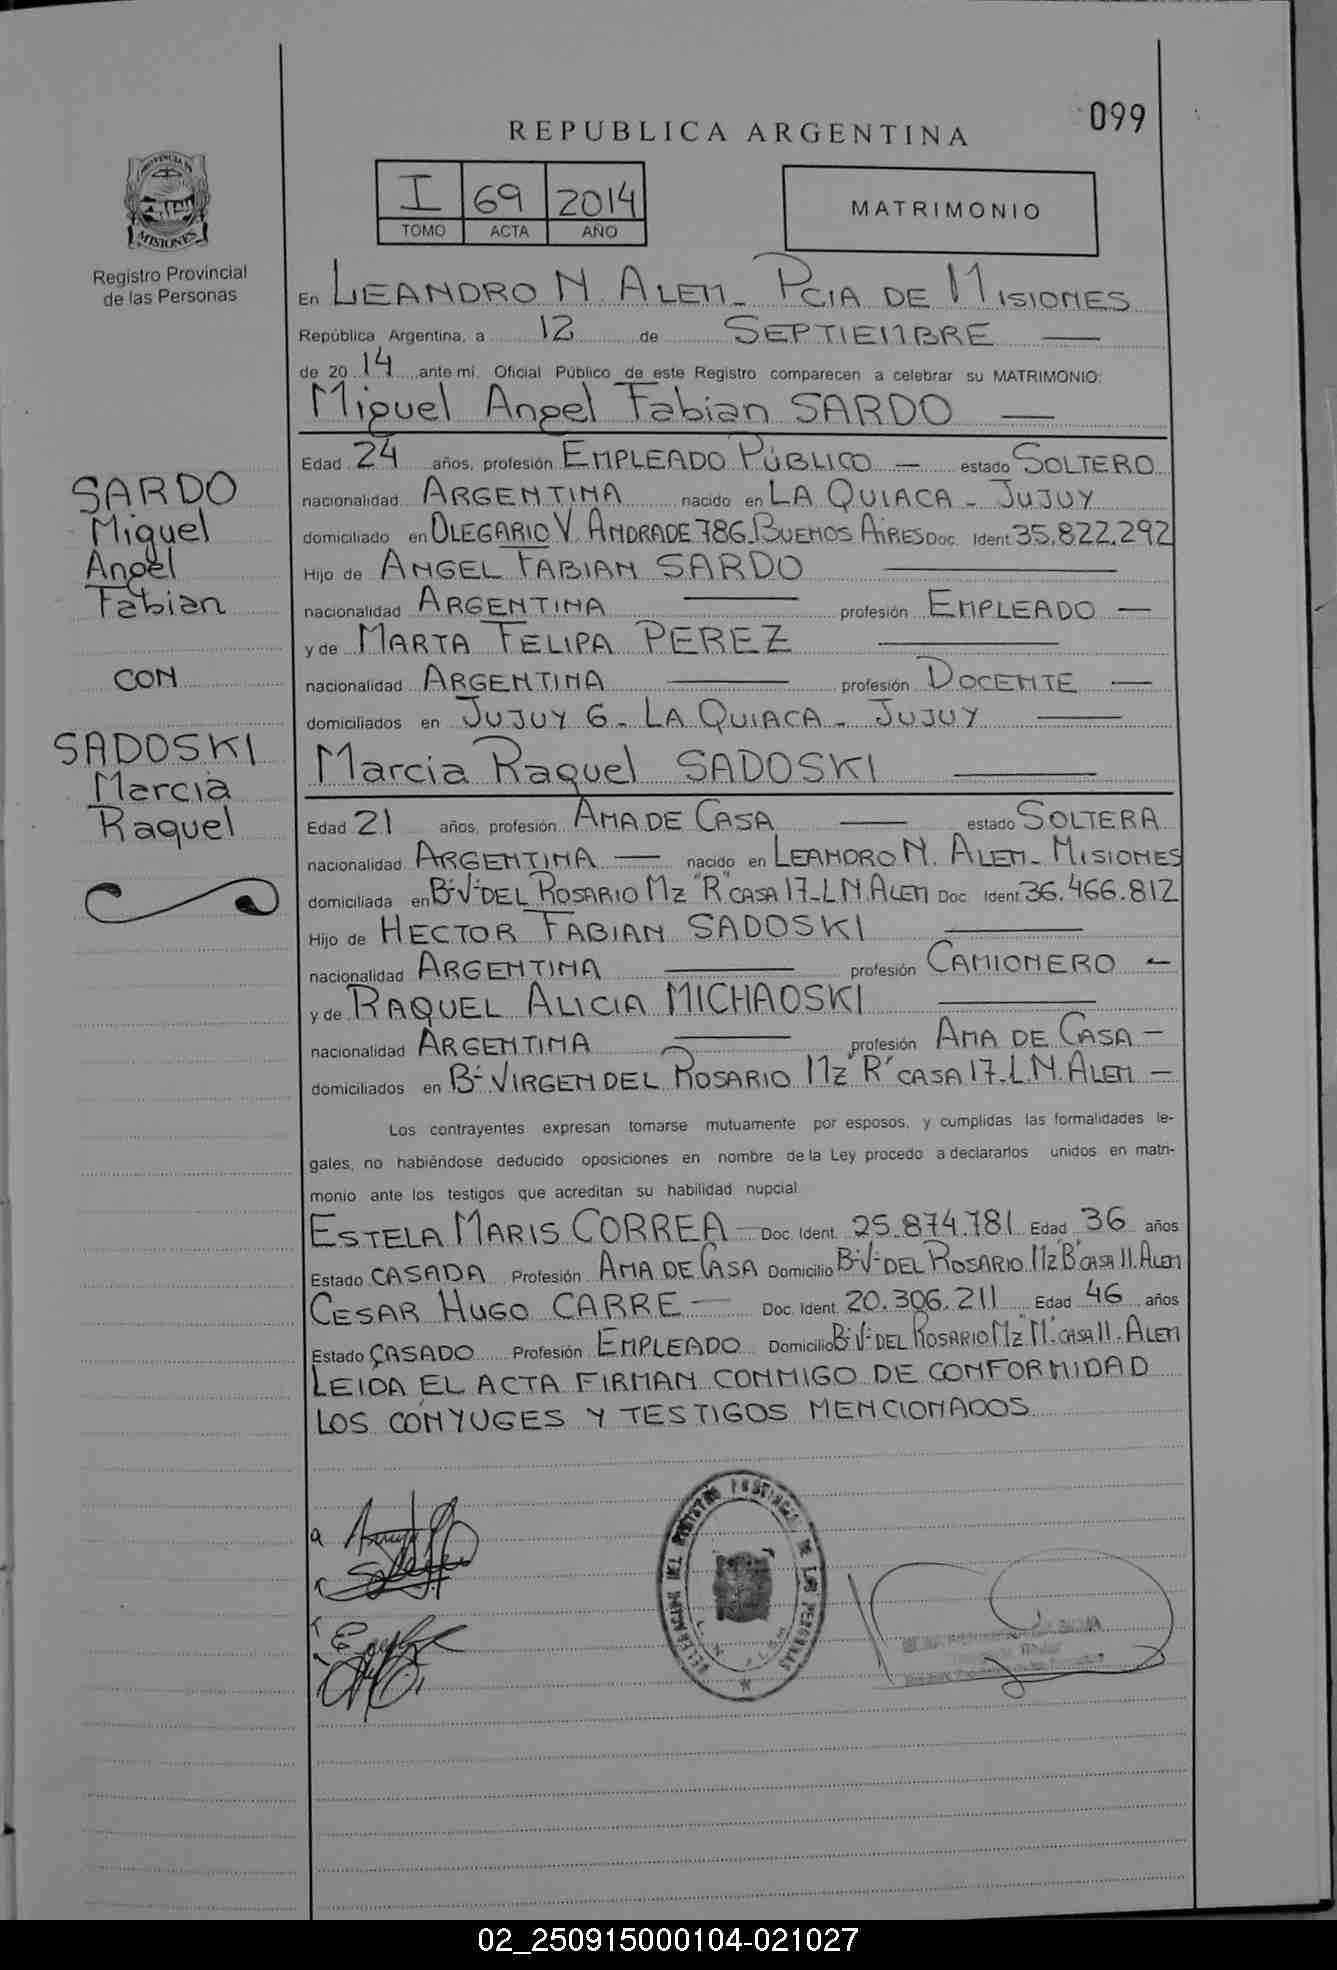 099
REPUBLICA ARGENTINA
I 69 2014
TOMO ACTA AÑO
MATRIMONIO
PROVINCIA DE
MISIONES
Registro Provincial
de las Personas
En LEANDRO N. ALEM - PCIA DE MISIONES
República Argentina, a 12 de SEPTIEMBRE
de 20 14 ante mí, Oficial Público de este Registro comparecen a celebrar su MATRIMONIO:
Miguel Angel Fabian SARDO
Edad 24 años, profesión EMPLEADO PÚBLICO - estado SOLTERO
nacionalidad ARGENTINA nacido en LA QUIACA - JUJUY
domiciliado en OLEGARIO V. ANDRADE 786. BUENOS AIRES Doc. Ident. 35.822.292
Hijo de ANGEL FABIAN SARDO
nacionalidad ARGENTINA profesión EMPLEADO -
y de MARTA FELIPA PEREZ
nacionalidad ARGENTINA profesión DOCENTE -
domiciliados en JUJUY 6 - LA QUIACA - JUJUY
Marcia Raquel SADOSKI
Edad 21 años, profesión AMA DE CASA estado SOLTERA
nacionalidad ARGENTINA - nacido en LEANDRO N. ALEM - MISIONES
domiciliada en B° V. DEL ROSARIO Mz "R" CASA 17 - L.N. ALEM Doc. Ident. 36.466.812
Hijo de HECTOR FABIAN SADOSKI
nacionalidad ARGENTINA profesión CAMIONERO -
y de RAQUEL ALICIA MICHAOSKI
nacionalidad ARGENTINA profesión AMA DE CASA -
domiciliados en B° VIRGEN DEL ROSARIO Mz "R" CASA 17 - L.N. ALEM -
SARDO
Miguel
Angel
Fabian
CON
SADOSKI
Marcia
Raquel
Los contrayentes expresan tomarse mutuamente por esposos, y cumplidas las formalidades le-
gales, no habiéndose deducido oposiciones en nombre de la Ley procedo a declararlos unidos en matri-
monio ante los testigos que acreditan su habilidad nupcial
ESTELA MARIS CORREA - Doc. Ident. 25.874.781 Edad 36 años
Estado CASADA Profesión AMA DE CASA Domicilio B° V. DEL ROSARIO Mz "B" CASA 11. ALEM
CESAR HUGO CARRE - Doc. Ident. 20.306.211 Edad 46 años
Estado CASADO Profesión EMPLEADO Domicilio B° V. DEL ROSARIO Mz "M" CASA 11. ALEM
LEIDA EL ACTA FIRMAN CONMIGO DE CONFORMIDAD
LOS CÓNYUGES Y TESTIGOS MENCIONADOS
DELEGACION DEL REGISTRO PROVINCIAL DE LAS PERSONAS
L. N. ALEM
02_250915000104-021027